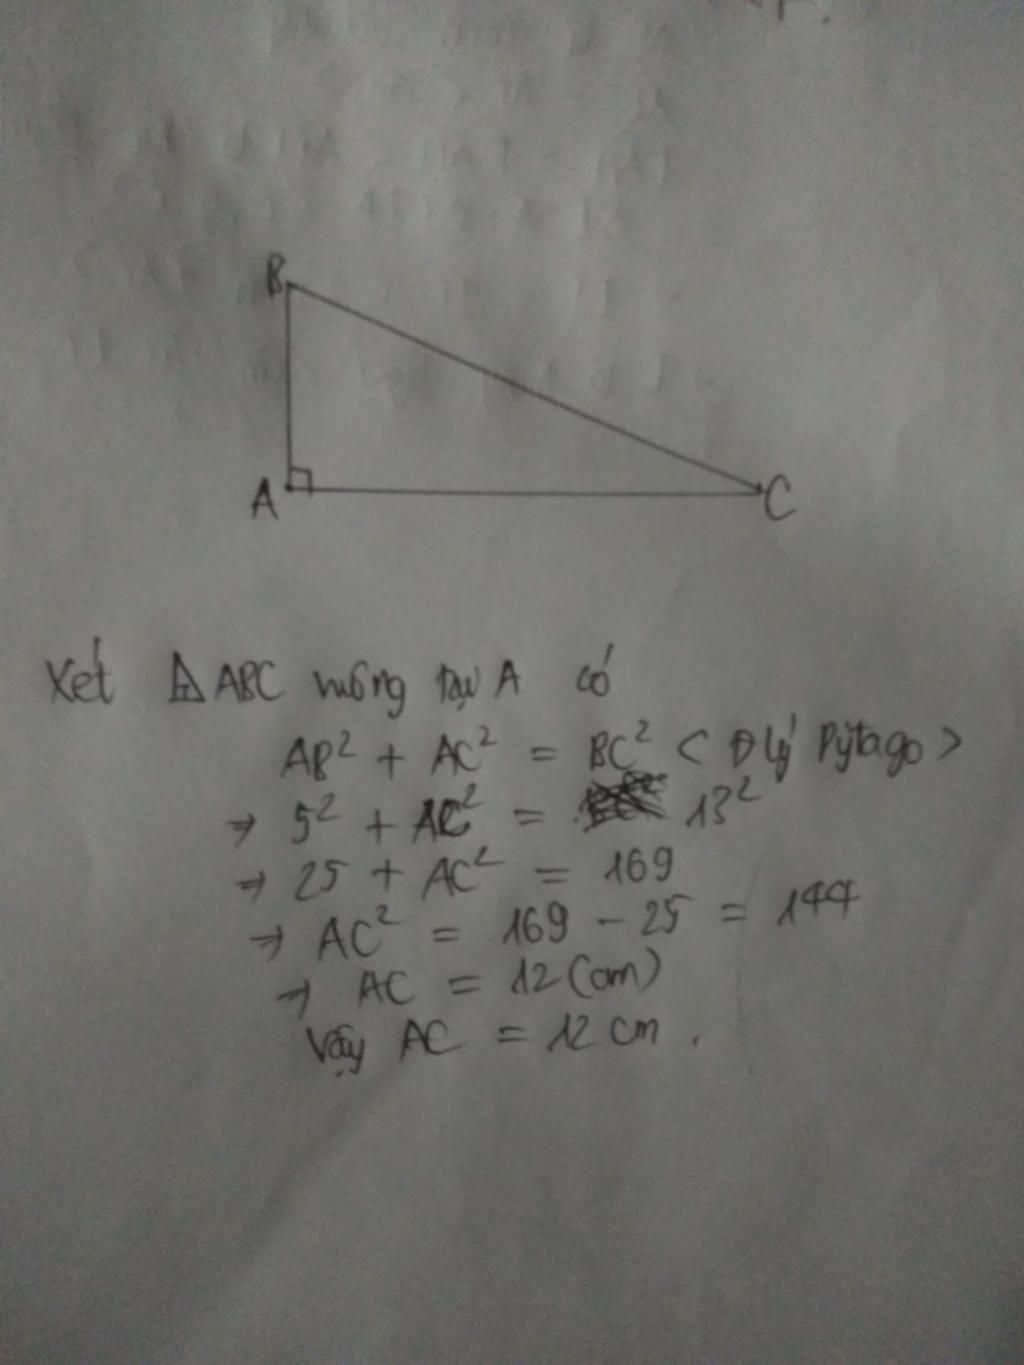 B
A
C
Xét △ABC vuông tại A có
AB² + AC² = BC² < Đ lý Pytago >
⇒ 5² + AC² = 13²
⇒ 25 + AC² = 169
⇒ AC² = 169 - 25 = 144
⇒ AC = 12 (cm)
Vậy AC = 12 cm .